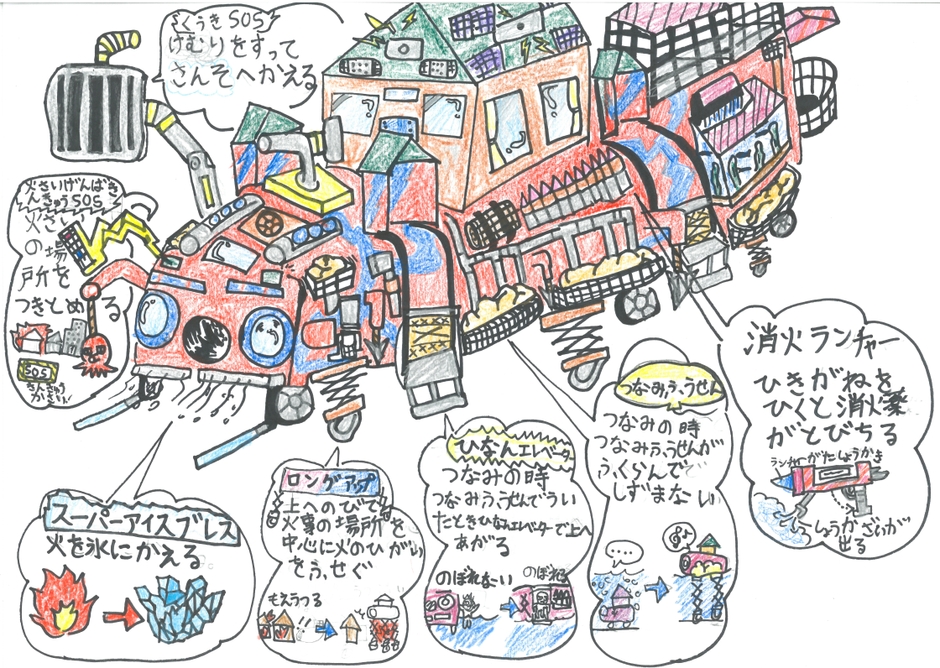 さくうきSOS
けむりをすって
さんそへかえる
火さいげんばき
んきゅうSOS
火さ
の場
所を
つきとめる
SOS
消火ランチャー
ひきがねを
ひくと消火薬
がとびちる
ランチャーがたしょうかき
しょうかざいが
出る
つなみふうせん
つなみの時
つなみふうせんが
ふくらんで
しずまない
ひなんエレベータ
つなみの時
つなみふうせんでうい
たときひなんエレベーターで上へ
あがる
のぼれない
のぼれる
ロングアップ
上へのびて
火事の場所を
中心に火のひがい
をふせぐ
もえうつる
スーパーアイスブレス
火を氷にかえる